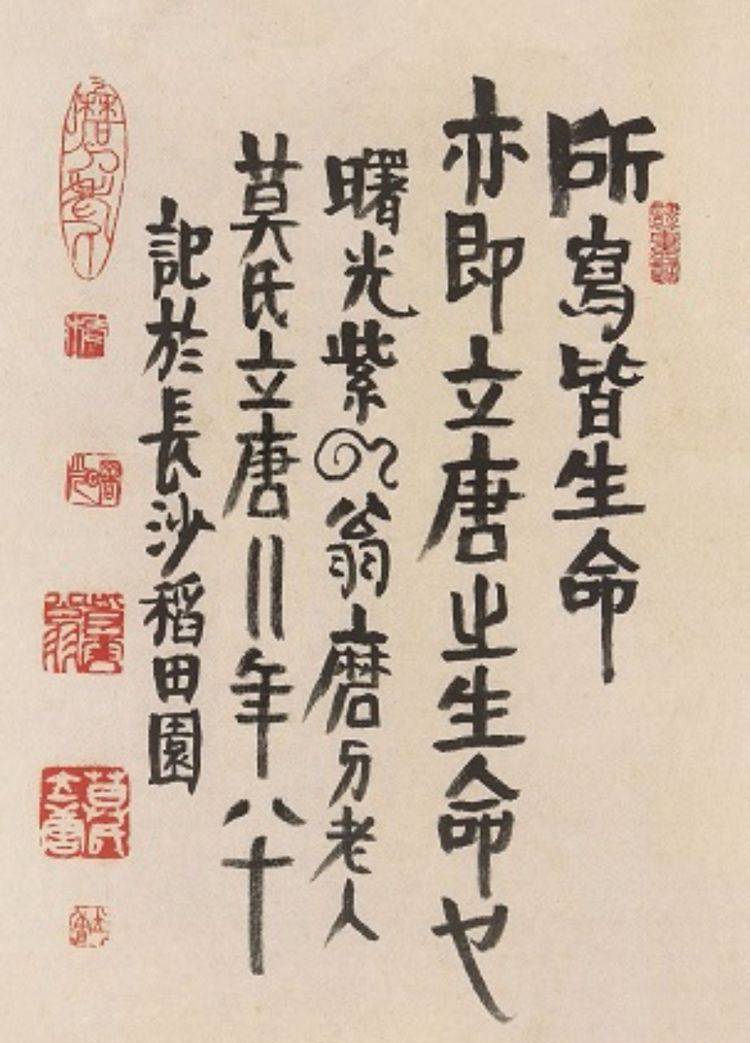 所寫皆生命
亦即立唐之生命也
曙光紫云翁磨刀老人
莫氏立唐〢年八十
記於長沙稻田園
莫氏立唐